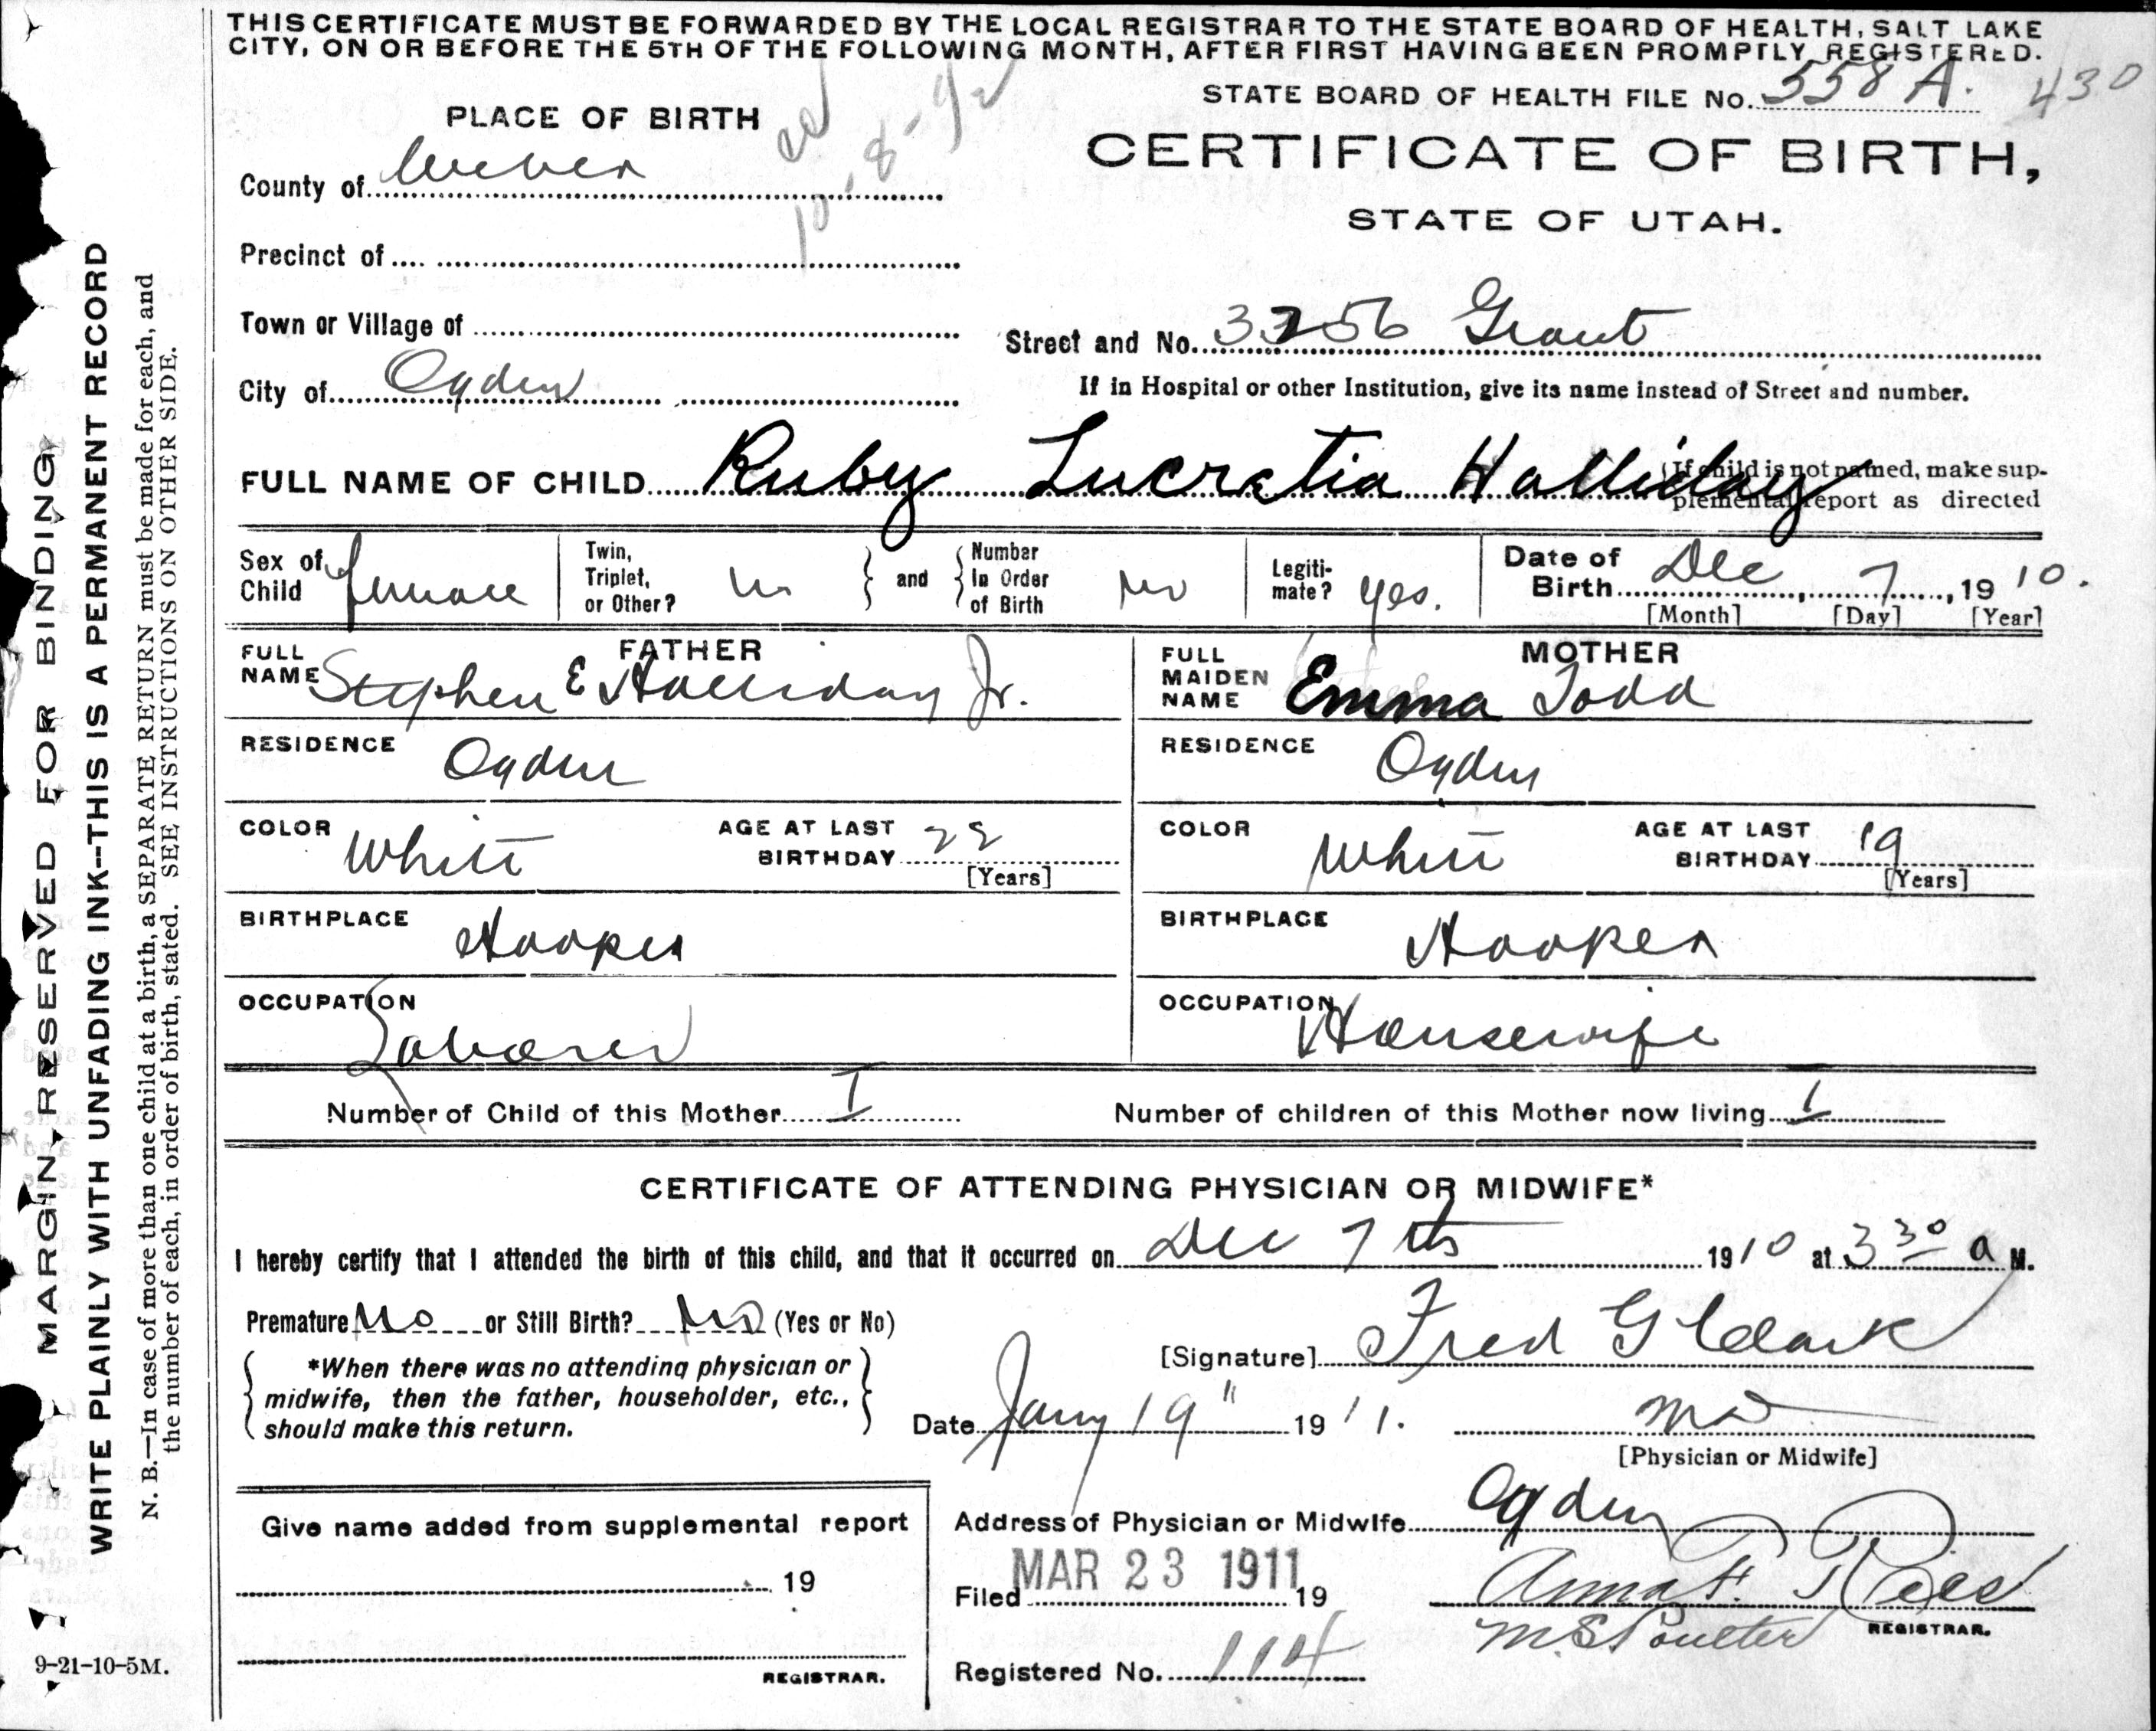 THIS CERTIFICATE MUST BE FORWARDED BY THE LOCAL REGISTRAR TO THE STATE BOARD OF HEALTH, SALT LAKE
CITY, ON OR BEFORE THE 5TH OF THE FOLLOWING MONTH, AFTER FIRST HAVING BEEN PROMPTLY REGISTERED.
STATE BOARD OF HEALTH FILE No. 558 A. 430
PLACE OF BIRTH
10-8-42
CERTIFICATE OF BIRTH,
STATE OF UTAH.
County of Weber
Precinct of
Town or Village of
Street and No. 3256 Grant
City of Ogden
If in Hospital or other Institution, give its name instead of Street and number.
FULL NAME OF CHILD Ruby Lucretia Halliday
(If child is not named, make sup-
plemental report as directed
Sex of Child female
Twin, Triplet, or Other? no
and
Number In Order of Birth no
Legiti-mate? yes.
Date of Birth Dec 7, 1910.
[Month] [Day] [Year]
FATHER
FULL NAME Stephen E Halliday Jr.
MOTHER
FULL MAIDEN NAME Emma Todd
RESIDENCE Ogden
RESIDENCE Ogden
COLOR White
AGE AT LAST BIRTHDAY 22
[Years]
COLOR White
AGE AT LAST BIRTHDAY 19
[Years]
BIRTHPLACE Hooper
BIRTHPLACE Hooper
OCCUPATION Laborer
OCCUPATION Housewife
Number of Child of this Mother 1
Number of children of this Mother now living 1
CERTIFICATE OF ATTENDING PHYSICIAN OR MIDWIFE*
I hereby certify that I attended the birth of this child, and that it occurred on Dec 7th 1910 at 3 30 a M.
Premature No or Still Birth? No (Yes or No)
[Signature] Fred G Clark
*When there was no attending physician or
midwife, then the father, householder, etc.,
should make this return.
Date Jany 19" 1911.
MD
[Physician or Midwife]
Address of Physician or Midwife Ogden
Give name added from supplemental report
19
REGISTRAR.
Filed MAR 23 1911 19
Anna F. Rees
M.S. Poulter
REGISTRAR.
Registered No. 114
MARGIN RESERVED FOR BINDING
WRITE PLAINLY WITH UNFADING INK--THIS IS A PERMANENT RECORD
N. B.—In case of more than one child at a birth, a SEPARATE RETURN must be made for each, and
the number of each, in order of birth, stated. SEE INSTRUCTIONS ON OTHER SIDE.
9-21-10-5M.